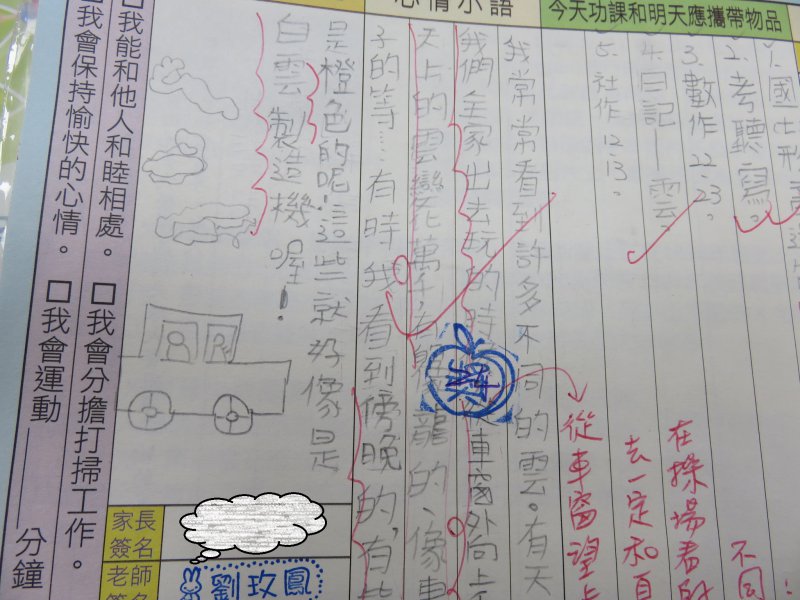 今天功課和明天應攜帶物品
心情小語
2.考聽寫。
3.數作22.23。
4.日記—雲。
5.社作12.13。
我常常看到許多不同的雲。有天
我們全家出去玩的時
從車窗外向上
天上的雲變化萬千,有
龍的、像車
子的等…有時我看到傍晚的,有些
是橙色的呢!這些就好像是
白雲製造機喔!
在操場看的
不同
去一定和
從車窗望
獎
□我能和他人和睦相處。
□我會分擔打掃工作。
□我會保持愉快的心情。
□我會運動
分鐘
家長
簽名
老師
劉玫鳳